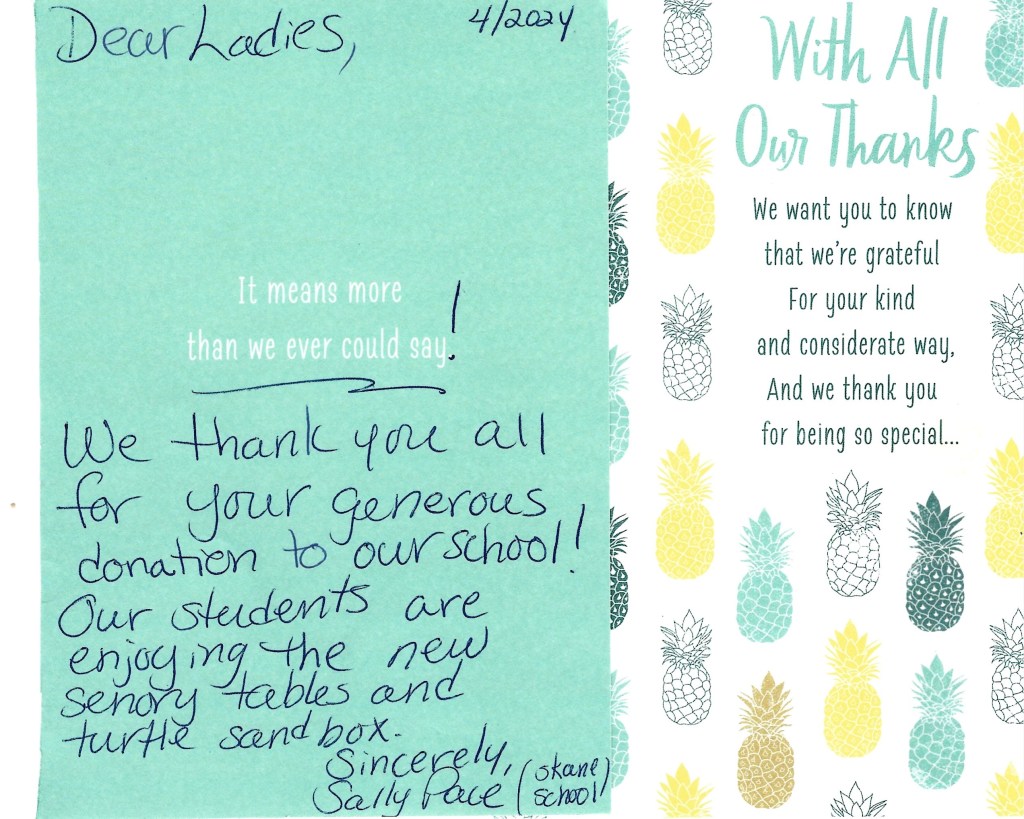 Dear Ladies,
4/2024
It means more
than we ever could say!
We thank you all
for your generous
donation to our school!
Our students are
enjoying the new
senory tables and
turtle sandbox.
Sincerely,
Sally Pace (Skane
school)
With All
Our Thanks
We want you to know
that we're grateful
For your kind
and considerate way,
And we thank you
for being so special...